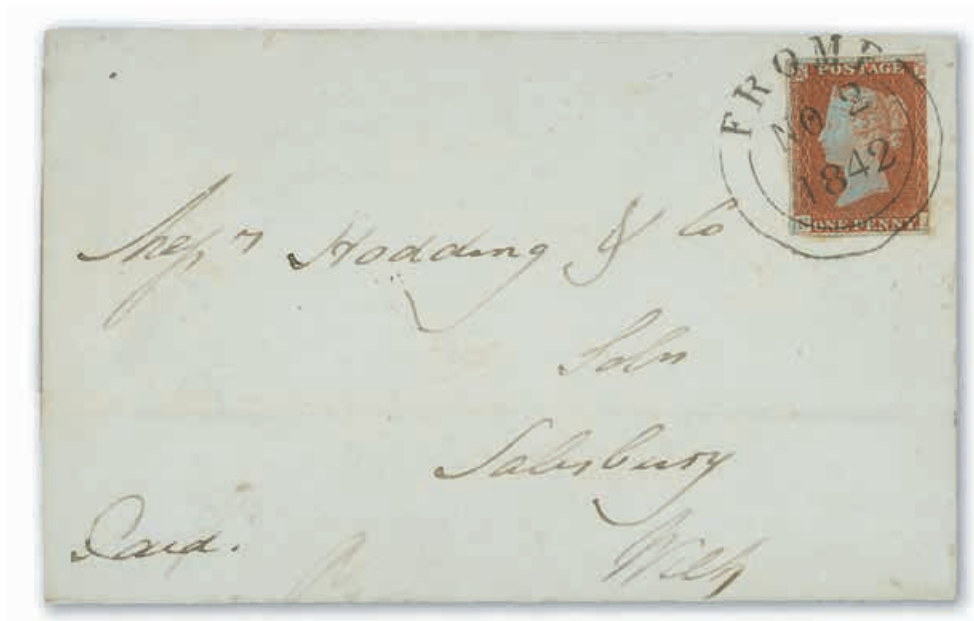 FROME
NO 2
1842
POSTAGE
ONE PENNY
Messrs Hodding & Co
Solrs
Salisbury
Wilts
Paid.